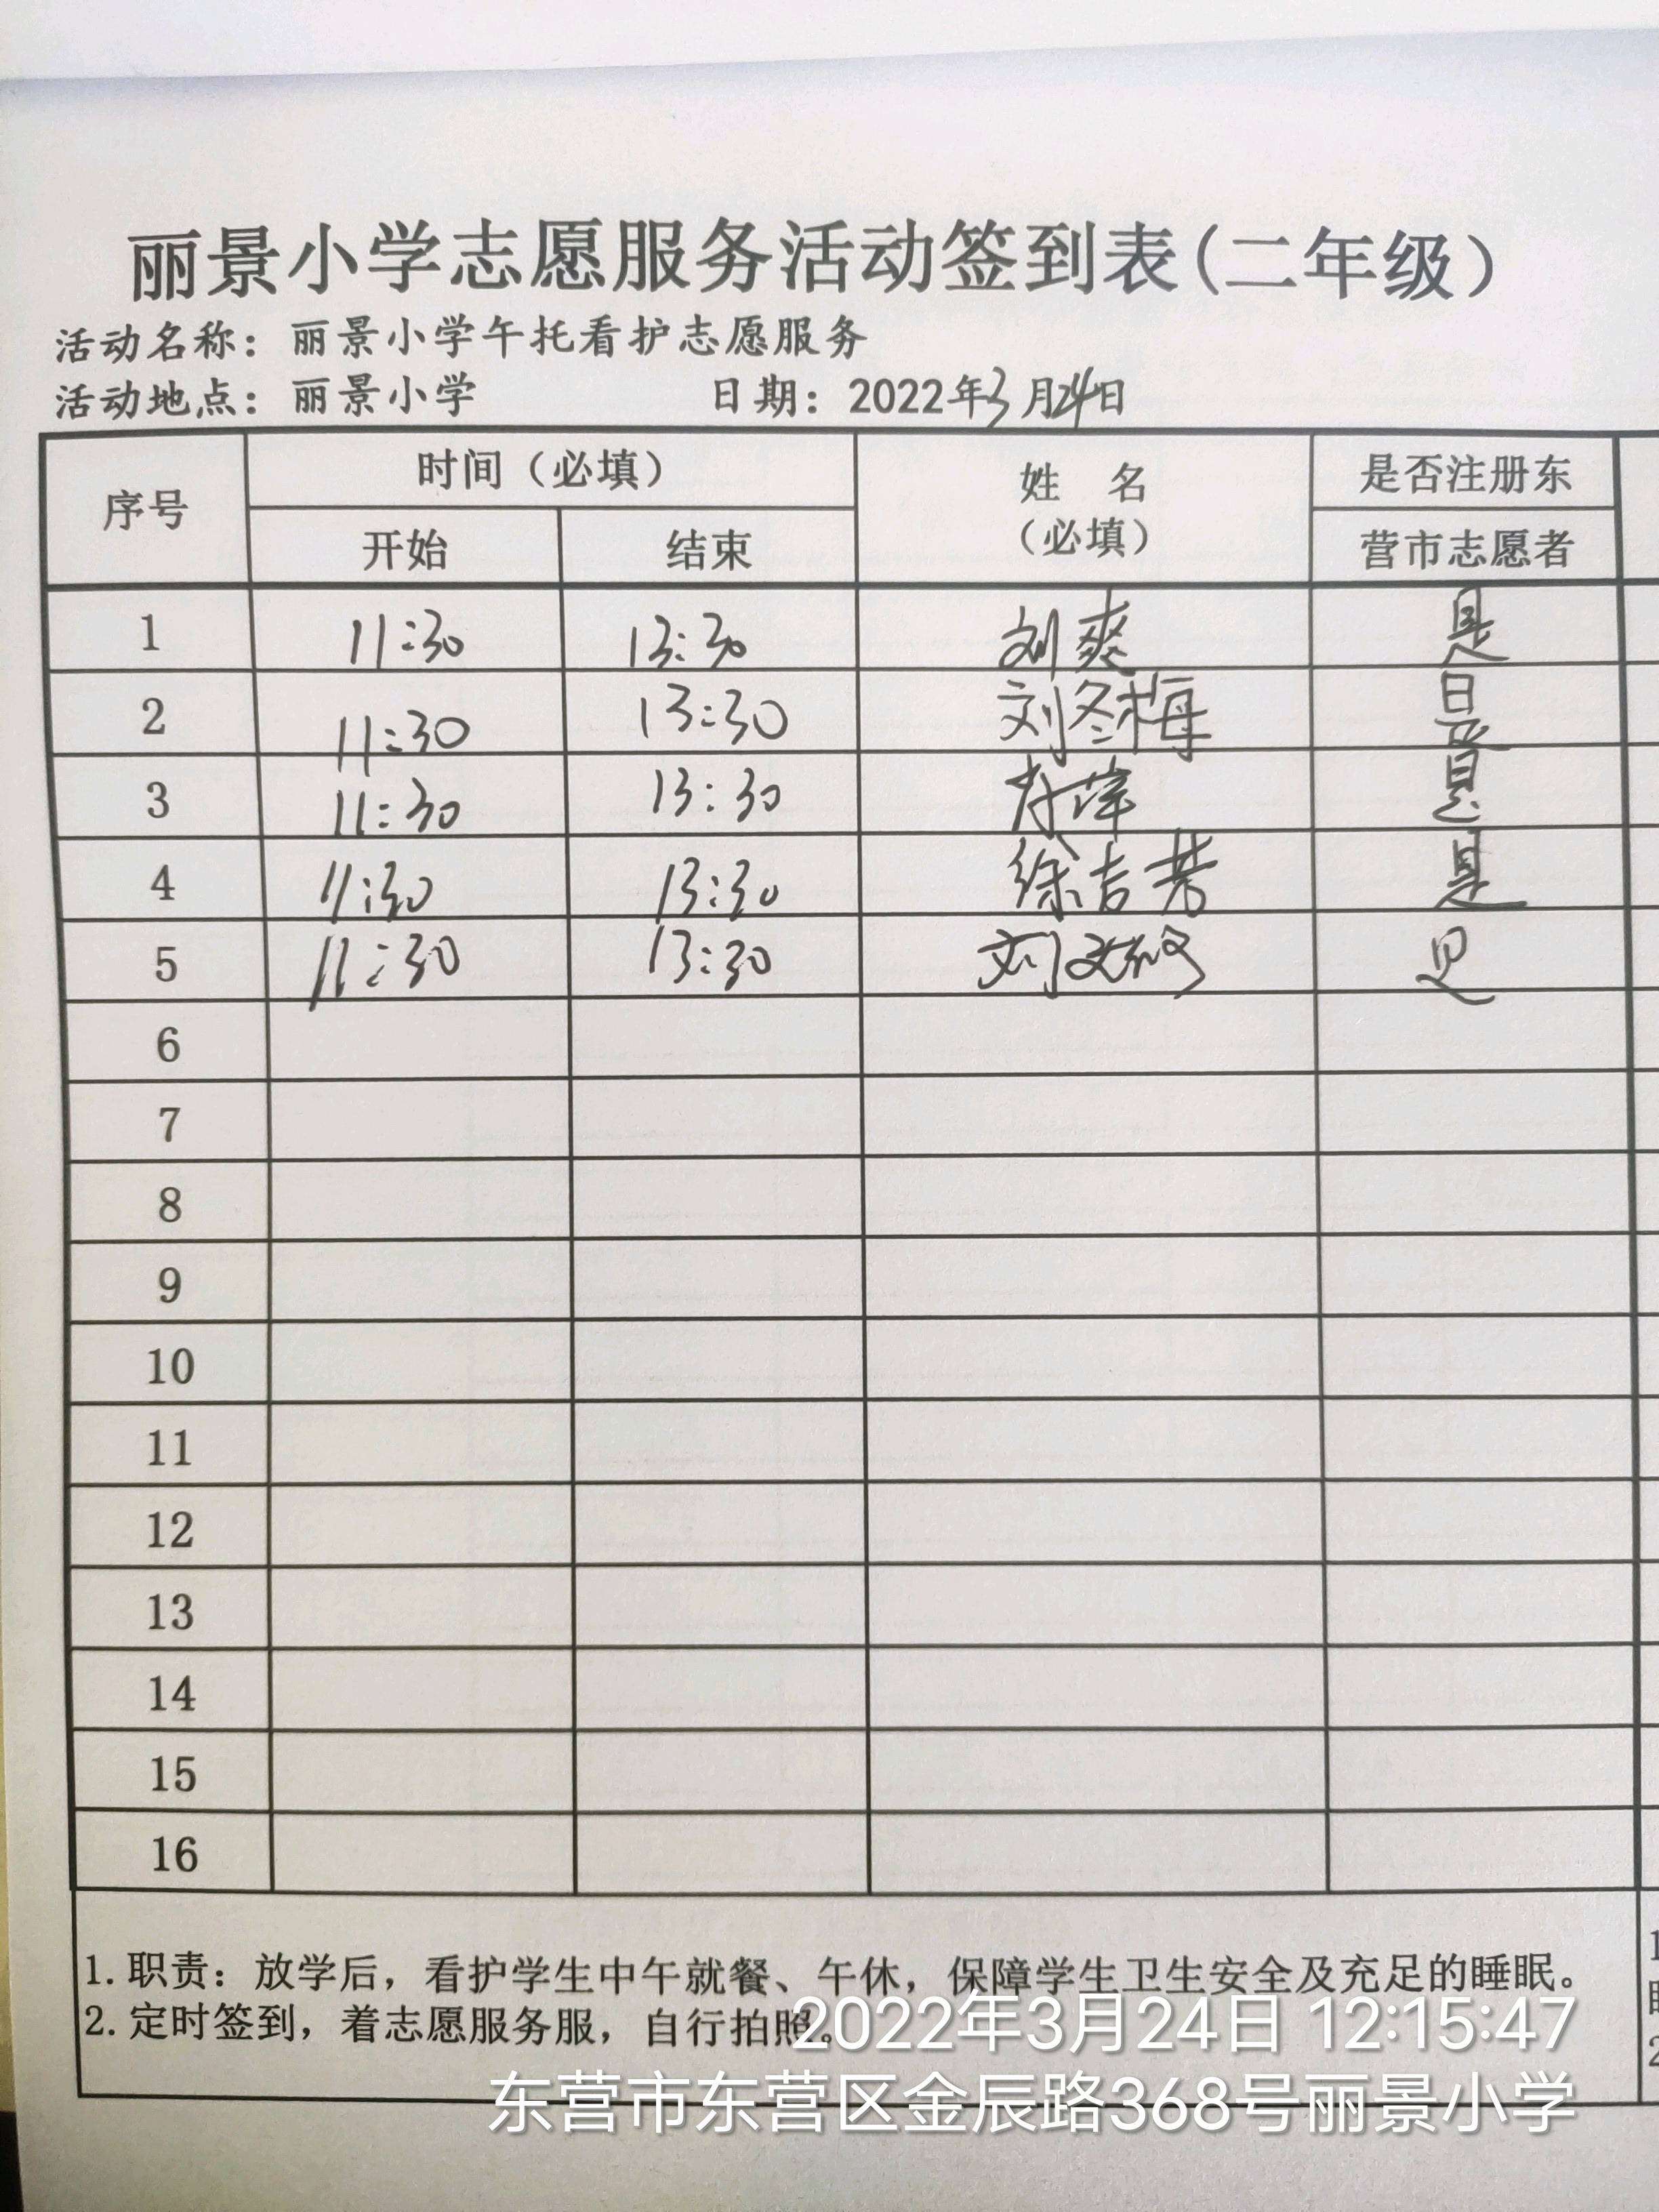 丽景小学志愿服务活动签到表(二年级)
活动名称：丽景小学午托看护志愿服务
活动地点：丽景小学 日期：2022年3月24日
序号 时间（必填） 姓 名 （必填） 是否注册东
开始 结束 营市志愿者
1 11:30 13:30 刘爽 是
2 11:30 13:30 刘冬梅 是
3 11:30 13:30 是
4 11:30 13:30 徐吉芳 是
5 11:30 13:30 刘 是
6
7
8
9
10
11
12
13
14
15
16
1.职责：放学后，看护学生中午就餐、午休，保障学生卫生安全及充足的睡眠。
2.定时签到，着志愿服务服，自行拍照。
2022年3月24日 12:15:47
东营市东营区金辰路368号丽景小学